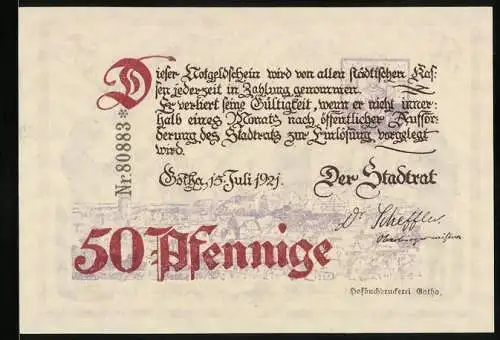 Dieser Notgeldschein wird von allen städtischen Kas-
sen jederzeit in Zahlung genommen.
Er verliert seine Gültigkeit, wenn er nicht inner-
halb eines Monats nach öffentlicher Auffor-
derung des Stadtrats zur Einlösung vorgelegt
wird.
Gotha, 15. Juli 1921.
Der Stadtrat
Nr. 80883*
Dr. Scheffler
Oberbürgermeister
50 Pfennige
Hofbuchdruckerei Gotha.